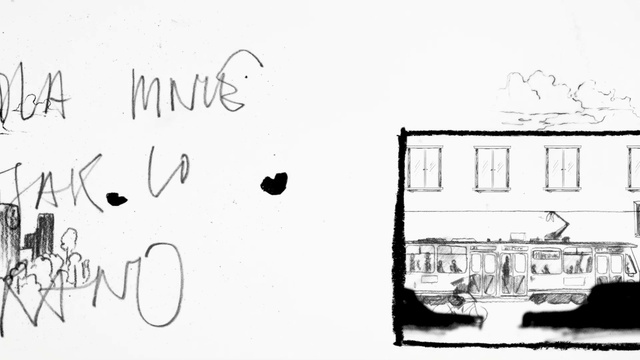 DLA MNIE
JAK CO
RANO